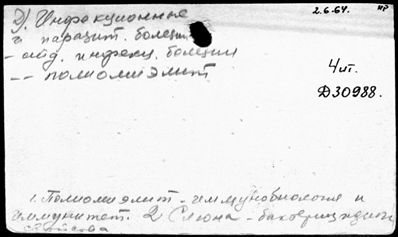 2.6.64.
Д). Инфекционные
и паразит. болезни.
- отд. инфекц. болезни
-- полиомиэлит
4 м.
Д30988.
1. Полиомиэлит - иммунобиология и
иммунитет. 2) Слюна - бактерицидные
свойства